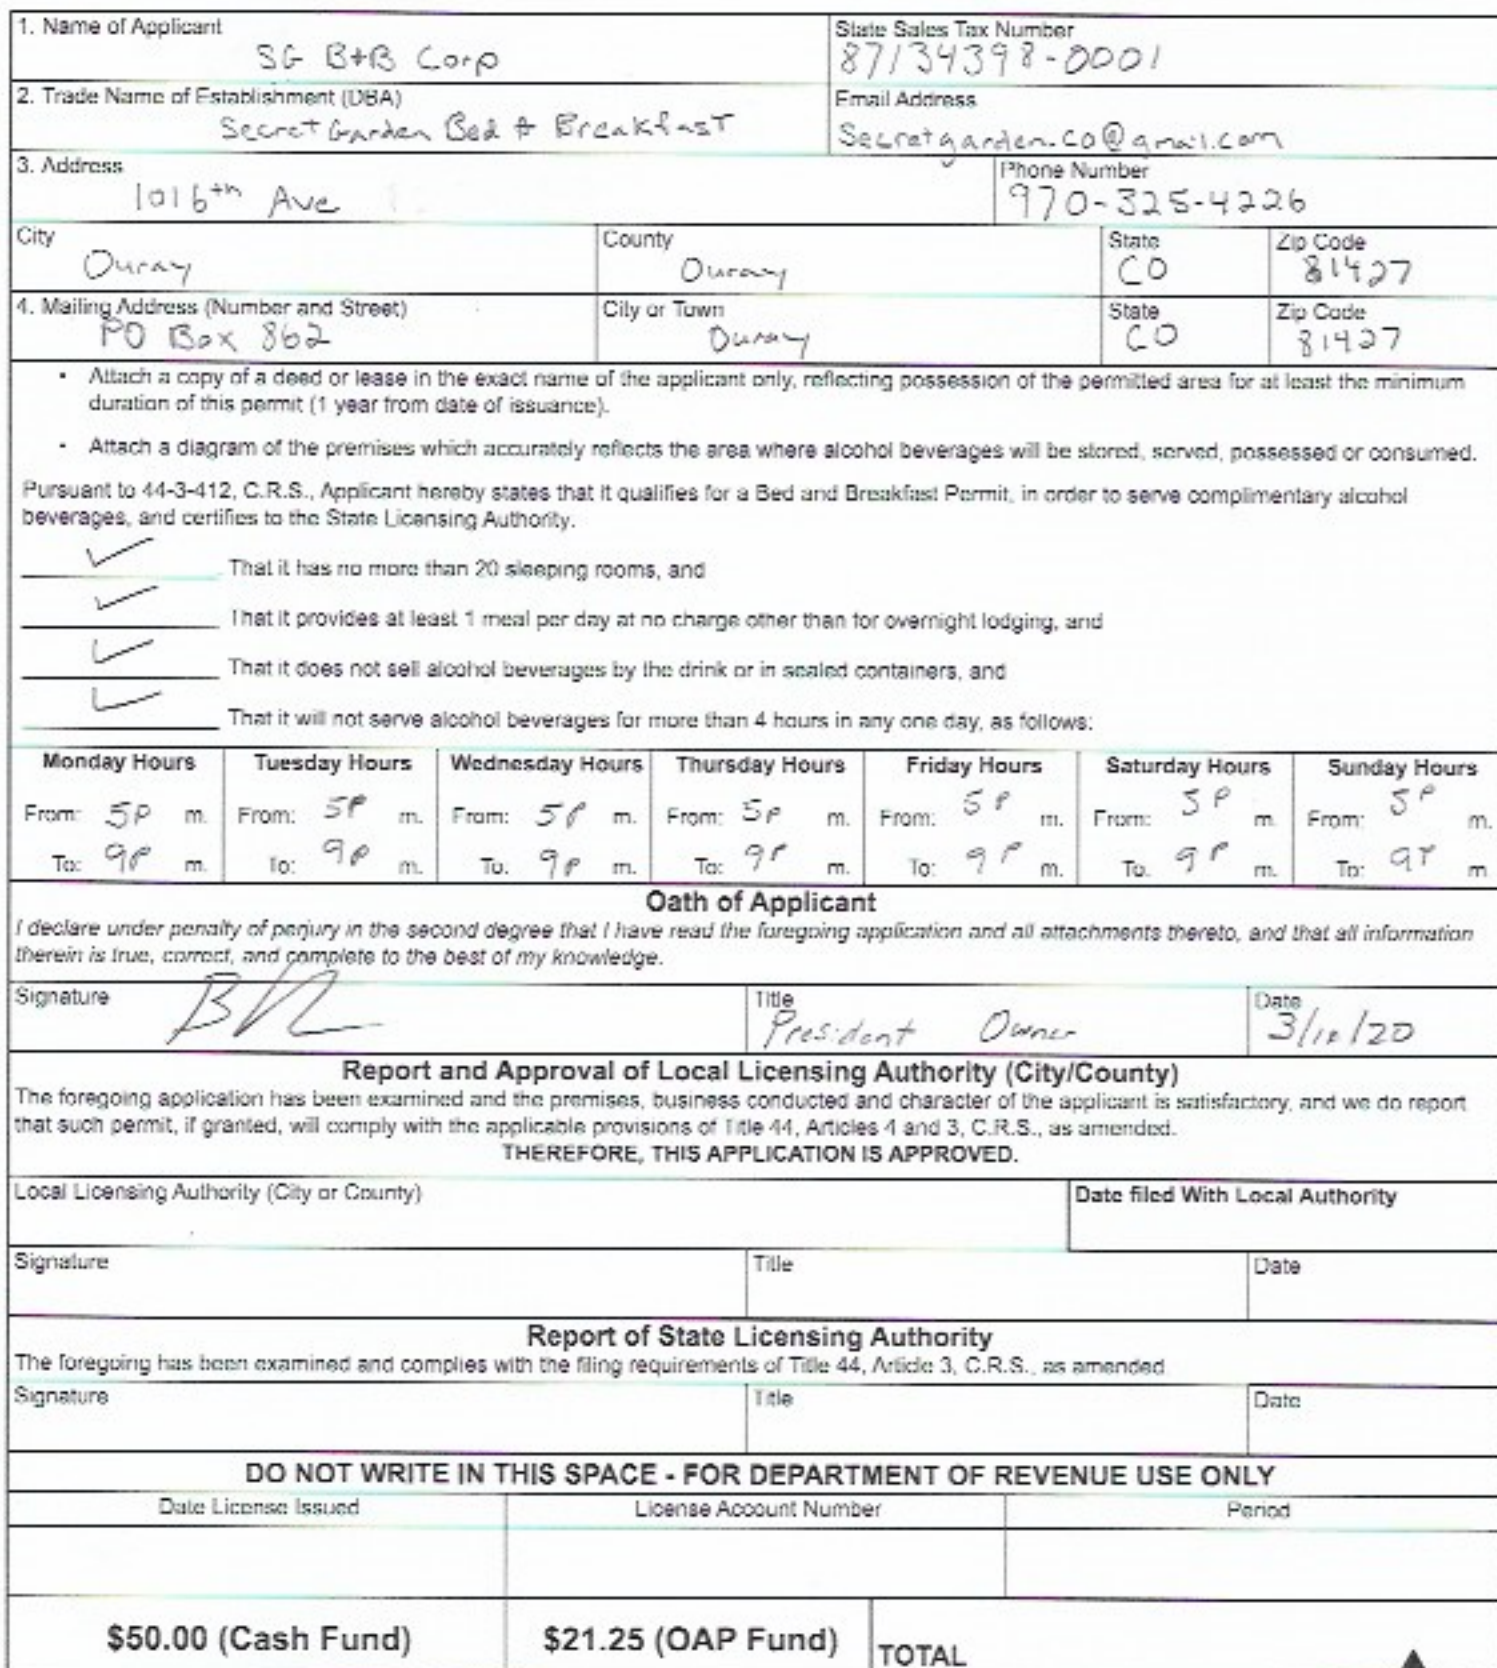 1. Name of Applicant
SG B+B Corp
State Sales Tax Number
87134398-0001
2. Trade Name of Establishment (DBA)
Secret Garden Bed & Breakfast
Email Address
Secretgarden.co@gmail.com
3. Address
101 6th Ave
Phone Number
970-325-4226
City
Ouray
County
Ouray
State
CO
Zip Code
81427
4. Mailing Address (Number and Street)
PO Box 862
City or Town
Ouray
State
CO
Zip Code
81427
• Attach a copy of a deed or lease in the exact name of the applicant only, reflecting possession of the permitted area for at least the minimum
duration of this permit (1 year from date of issuance).
• Attach a diagram of the premises which accurately reflects the area where alcohol beverages will be stored, served, possessed or consumed.
Pursuant to 44-3-412, C.R.S., Applicant hereby states that it qualifies for a Bed and Breakfast Permit, in order to serve complimentary alcohol
beverages, and certifies to the State Licensing Authority.
✓ That it has no more than 20 sleeping rooms, and
✓ That it provides at least 1 meal per day at no charge other than for overnight lodging, and
✓ That it does not sell alcohol beverages by the drink or in sealed containers, and
✓ That it will not serve alcohol beverages for more than 4 hours in any one day, as follows:
Monday Hours Tuesday Hours Wednesday Hours Thursday Hours Friday Hours Saturday Hours Sunday Hours
From: 5P m. From: 5P m. From: 5P m. From: 5P m. From: 5P m. From: 5P m. From: 5P m.
To: 9P m. To: 9P m. To: 9P m. To: 9P m. To: 9P m. To: 9P m. To: 9P m
Oath of Applicant
I declare under penalty of perjury in the second degree that I have read the foregoing application and all attachments thereto, and that all information
therein is true, correct, and complete to the best of my knowledge.
Signature
Title
President Owner
Date
Report and Approval of Local Licensing Authority (City/County)
The foregoing application has been examined and the premises, business conducted and character of the applicant is satisfactory, and we do report
that such permit, if granted, will comply with the applicable provisions of Title 44, Articles 4 and 3, C.R.S., as amended.
THEREFORE, THIS APPLICATION IS APPROVED.
Local Licensing Authority (City or County)
Date filed With Local Authority
Signature
Title
Date
Report of State Licensing Authority
The foregoing has been examined and complies with the filing requirements of Title 44, Article 3, C.R.S., as amended
Signature
Title
Date
DO NOT WRITE IN THIS SPACE - FOR DEPARTMENT OF REVENUE USE ONLY
Date License Issued
License Account Number
Period
$50.00 (Cash Fund)
$21.25 (OAP Fund)
TOTAL